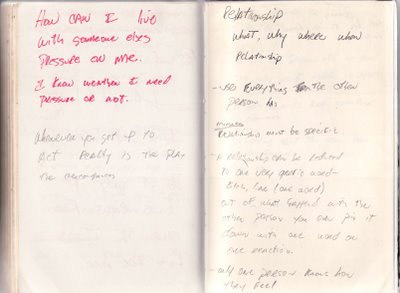 How CAN I live
with someone elses
pressure on me.
I know weather I need
pressure or not.
Whenever you get up to
Act Really is the play
the
Relationship
what, why where when
Relationship
- uses everything the other
person has.
Relationship must be specific
- A relationship can be reduced
to one very generic word-
like, love (one word)
out of what happend with the
other person you even pin it
down with one word or
one reaction.
- only one person knows how
they feel